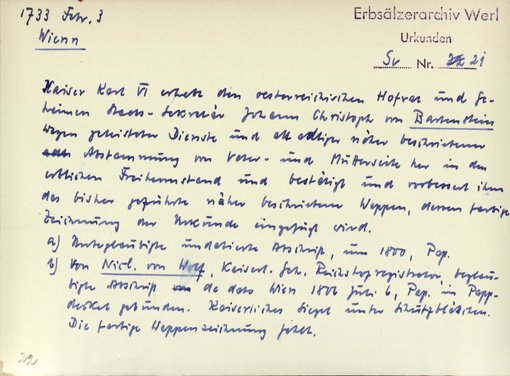 1733 Febr. 3
Wienn
Erbsälzerarchiv Werl
Urkunden
Sv Nr. 21
Kaiser Karl VI erhebt den oesterreichischen Hofrat und Ge-
heimen Staats-Sekretär Johann Christoph von Bartenstein
wegen geleisteter Dienste und altadliger näher beschriebener
Abstammung von Vater- und Mutterseite her in den
erblichen Freiherrnstand und bestätigt und verbessert ihm
das bisher geführte näher beschriebene Wappen, dessen farbige
Zeichnung der Urkunde eingefügt wird.
a) Unbeglaubigte undatierte Abschrift, um 1800, Pap.
b) Von Nicl. von Wolf, Kaiserl. Geh. Reichshofregistrator, beglau-
bigte Abschrift de dato Wien 1802 Juli 6, Pap. in Papp-
deckel gebunden. Kaiserliches Siegel unter Schutzblättchen.
Die farbige Wappenzeichnung fehlt.